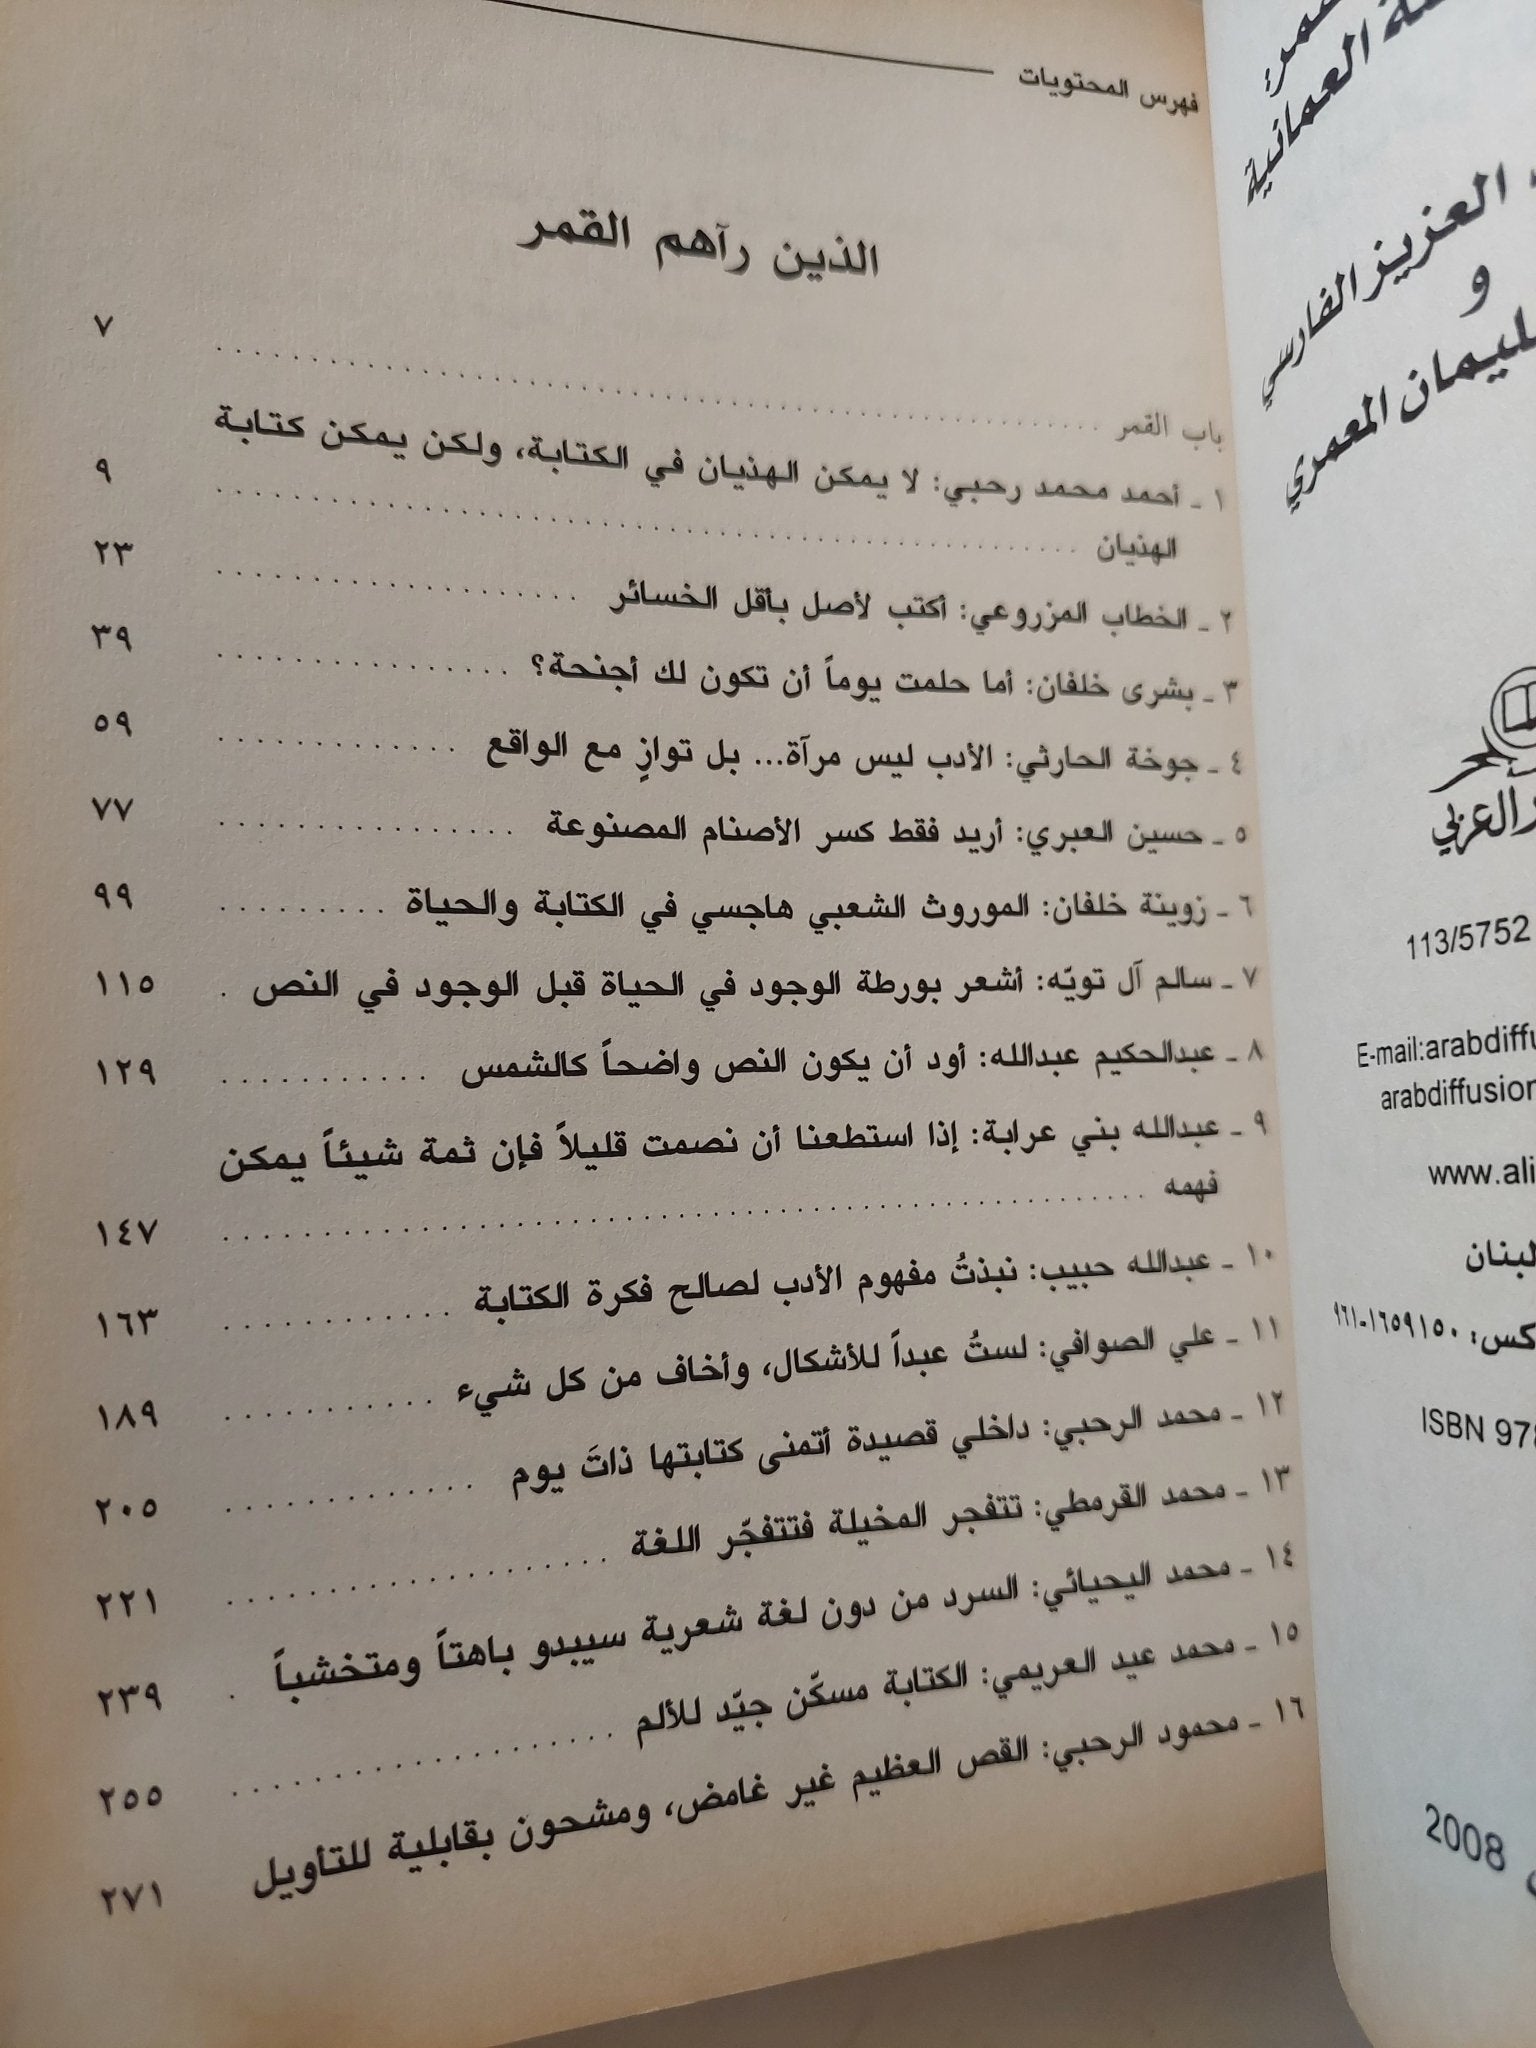 العمانية
العزيز الفارسي
و
المعمري
العربي
113/5752
E-mail:arabdiffu
arabdiffusion
www.ali
لبنان
ISBN 978
2008
فهرس المحتويات
الذين رآهم القمر
باب القمر ........ ٧
١ ـ أحمد محمد رحبي: لا يمكن الهذيان في الكتابة، ولكن يمكن كتابة
الهذيان ........ ٩
٢ ـ الخطاب المزروعي: أكتب لأصل بأقل الخسائر ........ ٢٣
٣ ـ بشرى خلفان: أما حلمت يوماً أن تكون لك أجنحة؟ ........ ٣٩
٤ ـ جوخة الحارثي: الأدب ليس مرآة... بل توازٍ مع الواقع ........ ٥٩
٥ ـ حسين العبري: أريد فقط كسر الأصنام المصنوعة ........ ٧٧
٦ ـ زوينة خلفان: الموروث الشعبي هاجسي في الكتابة والحياة ........ ٩٩
٧ ـ سالم آل تويّه: أشعر بورطة الوجود في الحياة قبل الوجود في النص . ١١٥
٨ ـ عبدالحكيم عبدالله: أود أن يكون النص واضحاً كالشمس ........ ١٢٩
٩ ـ عبدالله بني عرابة: إذا استطعنا أن نصمت قليلاً فإن ثمة شيئاً يمكن
فهمه ........ ١٤٧
١٠ ـ عبدالله حبيب: نبذتُ مفهوم الأدب لصالح فكرة الكتابة ........ ١٦٣
١١ ـ علي الصوافي: لستُ عبداً للأشكال، وأخاف من كل شيء ........ ١٨٩
١٢ ـ محمد الرحبي: داخلي قصيدة أتمنى كتابتها ذاتَ يوم ........ ٢٠٥
١٣ ـ محمد القرمطي: تتفجر المخيلة فتتفجّر اللغة ........ ٢٢١
١٤ ـ محمد اليحيائي: السرد من دون لغة شعرية سيبدو باهتاً ومتخشباً . ٢٣٩
١٥ ـ محمد عيد العريمي: الكتابة مسكّن جيّد للألم ........ ٢٥٥
١٦ ـ محمود الرحبي: القص العظيم غير غامض، ومشحون بقابلية للتأويل ٢٧١